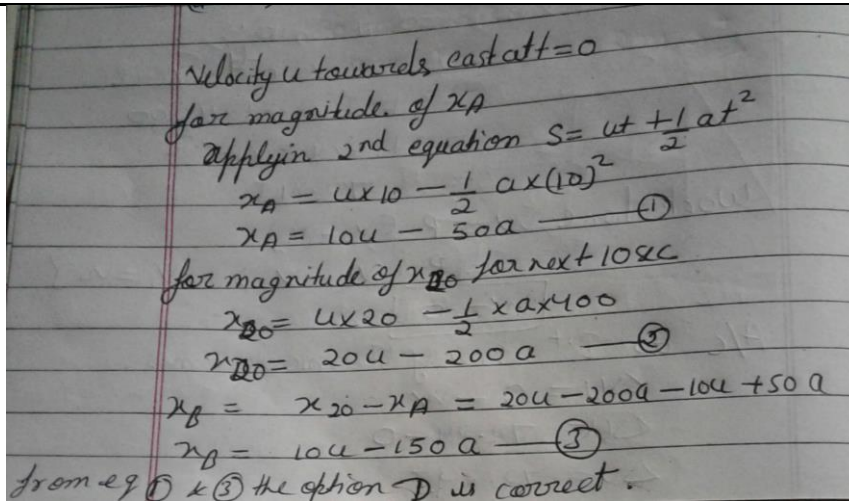 Velocity u towards east at t=0
for magnitude. of xA
applyin 2nd equation S= ut + 1/2 at²
xA = u×10 - 1/2 a×(10)²
xA = 10u - 50a —— ①
for magnitude of x20 for next 10 sec
x20 = u×20 - 1/2 ×a×400
x20 = 20u - 200a —— ②
xB = x20 - xA = 20u - 200a - 10u + 50a
xB = 10u - 150a —— ③
from eq ① & ③ the option D is correct.